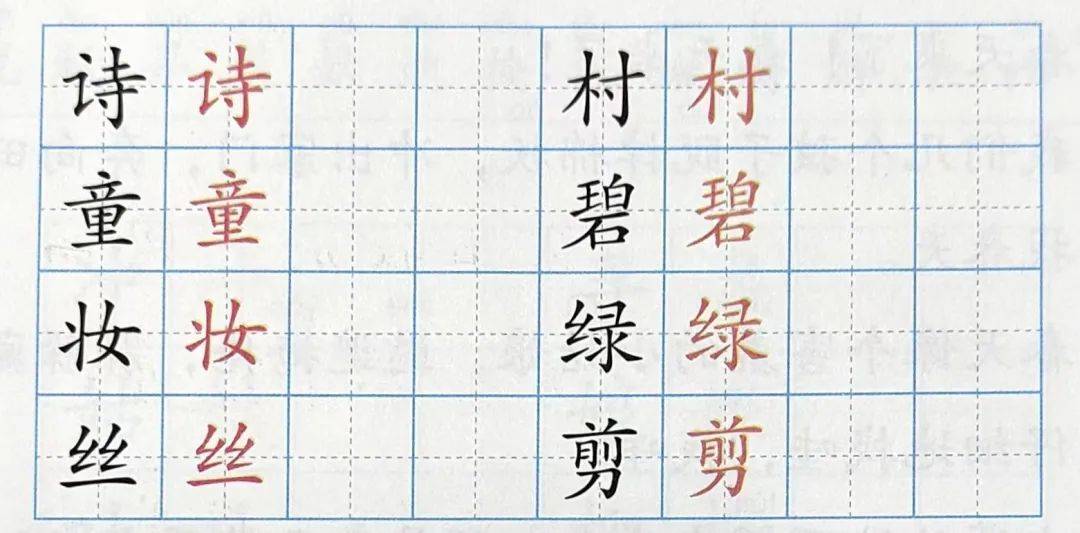 诗 诗 村 村
童 童 碧 碧
妆 妆 绿 绿
丝 丝 剪 剪